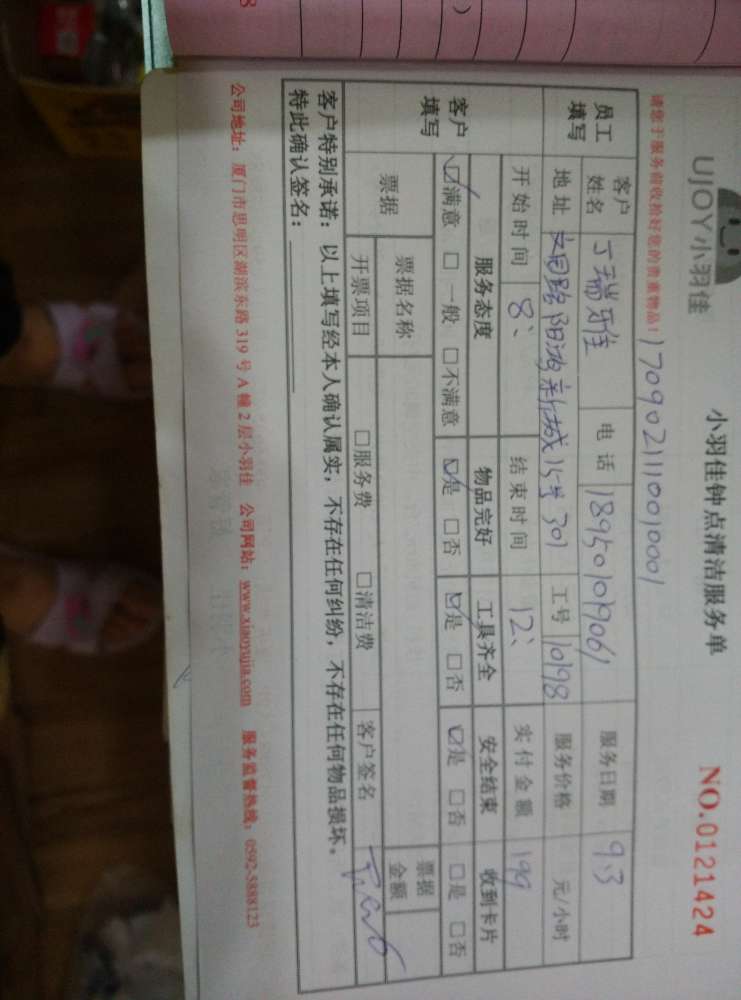 UJOY小羽佳
小羽佳钟点清洁服务单
NO.0121424
请您于服务前收拾好您的贵重物品！
1709021110010001
员工填写 客户姓名 丁瑞雅 电话 18950109061 服务日期 9.3
地址 文园路阳鸿新城15号301 工号 10198 服务价格 元/小时
开始时间 8: 结束时间 12: 实付金额 199
客户填写 服务态度 物品完好 工具齐全 安全结束 收到卡片
☑满意 □一般 □不满意 ☑是 □否 ☑是 □否 ☑是 □否 □是 □否
票据 票据名称 票据金额
开票项目 □服务费 □清洁费 客户签名
客户特别承诺：以上填写经本人确认属实，不存在任何纠纷，不存在任何物品损坏。
特此确认签名：
公司地址：厦门市思明区湖滨东路319号A幢2层小羽佳 公司网站：www.xiaoyujia.com 服务监督热线：0592-5888123